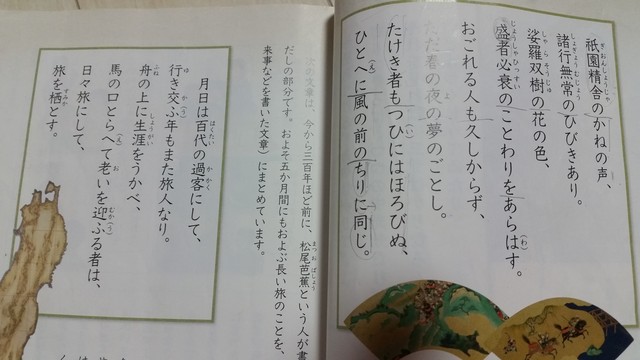 祇園精舎のかねの声、
諸行無常のひびきあり。
娑羅双樹の花の色、
盛者必衰のことわりをあらはす。
おごれる人も久しからず、
ただ春の夜の夢のごとし。
たけき者もつひにはほろびぬ、
ひとへに風の前のちりに同じ。
次の文章は、今から三百年ほど前に、松尾芭蕉という人が書
だしの部分です。およそ五か月間にもおよぶ長い旅のことを、
来事などを書いた文章）にまとめています。
月日は百代の過客にして、
行き交ふ年もまた旅人なり。
舟の上に生涯をうかべ、
馬の口とらへて老いを迎ふる者は、
日々旅にして、
旅を栖とす。